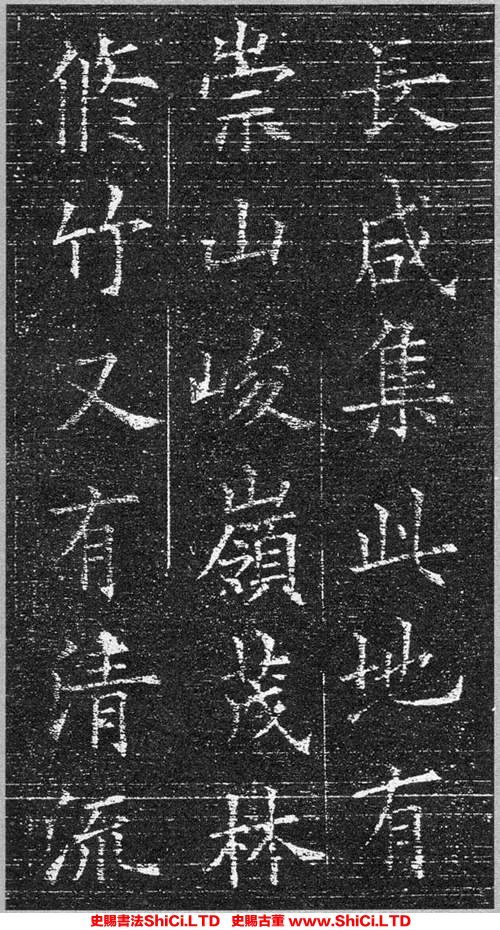 長咸集此地有
崇山峻嶺茂林
修竹又有清流
史賜書法ShiCi.LTD 史賜古董 www.ShiCi.LTD